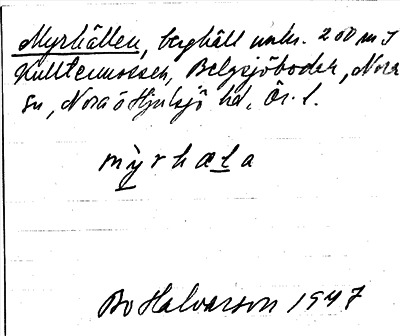 Myrhällen, berghäll unkr. 200 m S
Kulltemossen, Belgsjöboder, Nora
sn, Nora o Hjulsjö hd, Ör. l.
mỳrhæḷa
Bo Halvarson 1947